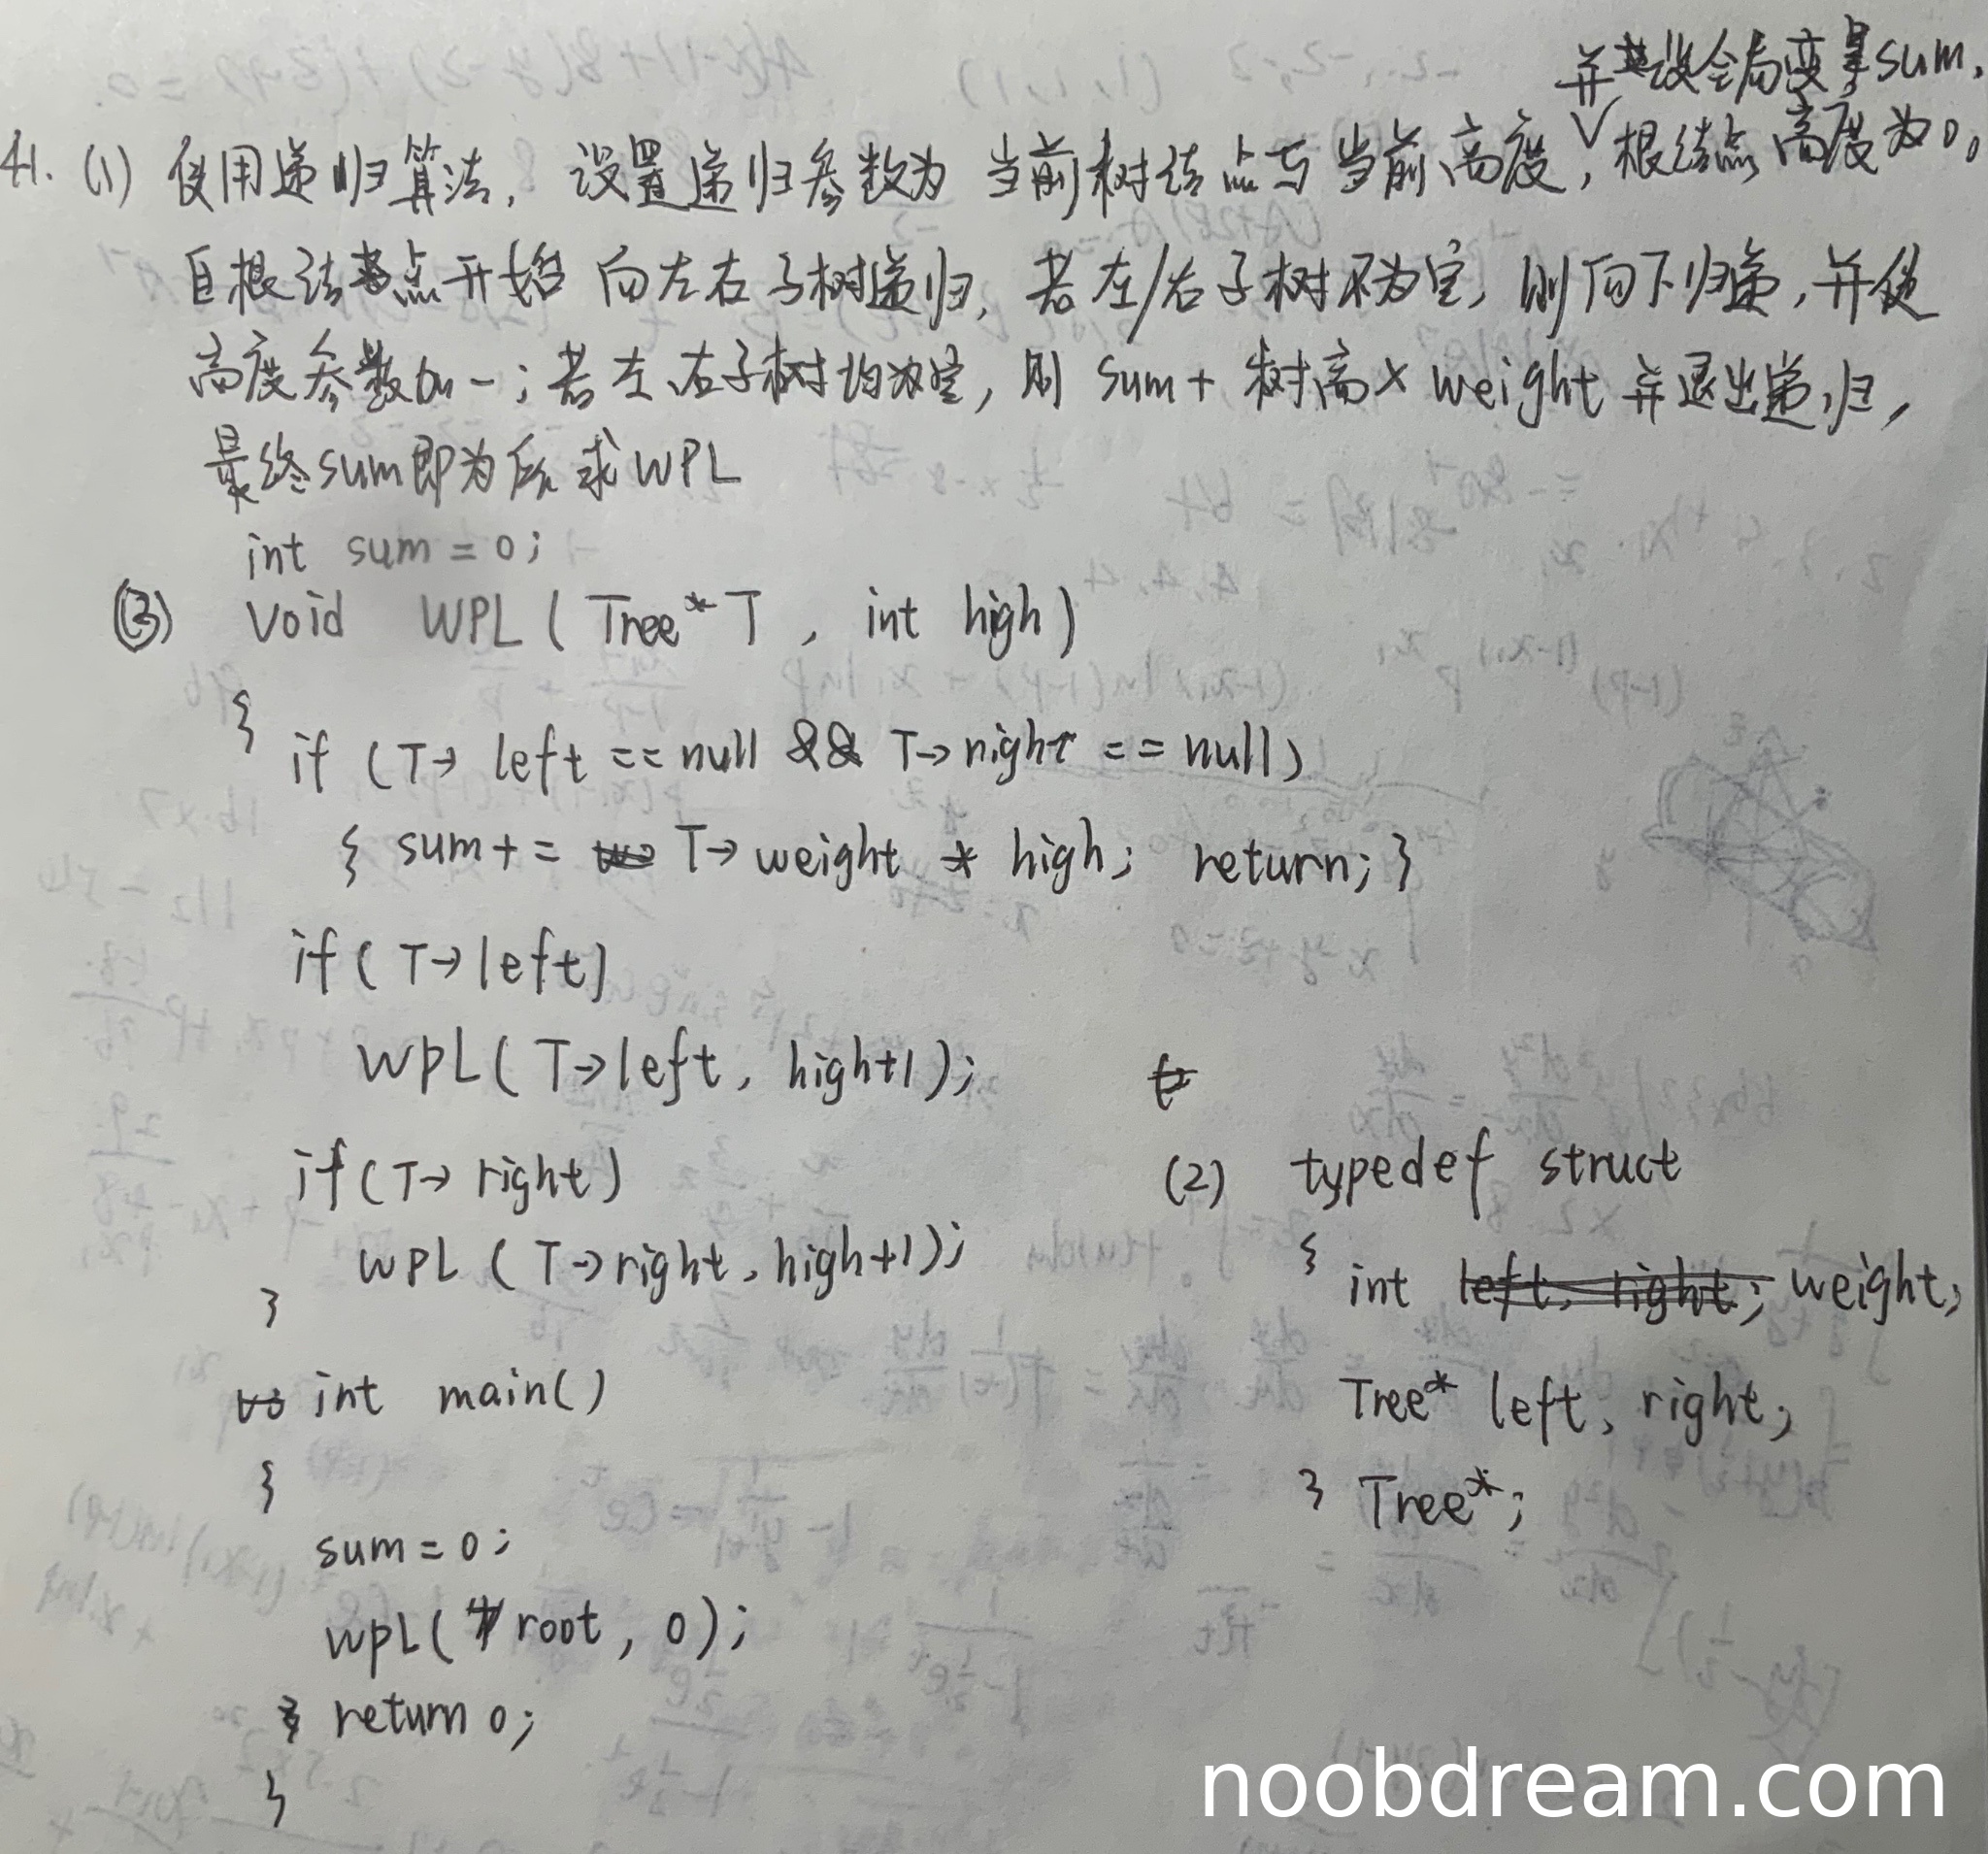 并设全局变量sum,
41. (1) 使用递归算法, 设置递归参数为 当前树结点与当前高度, 根结点高度为0。
自根结点开始 向左右子树递归, 若左/右子树不为空, 则向下归递, 并使
高度参数加一; 若左、右子树均为空, 则 sum + 树高 × weight 并退出递归,
最终sum即为所求WPL
int sum = 0;
(3) Void WPL ( Tree* T , int high )
{
if (T→ left == null && T→right == null)
{ sum += T→ weight * high; return; }
if ( T→left)
WPL( T→left, high+1);
if (T→ right)
WPL ( T→right, high+1);
}
int main()
{
sum = 0;
WPL( root, 0);
return 0;
}
(2) typedef struct
{
int left, right; weight;
Tree* left, right;
} Tree*;
noobdream.com